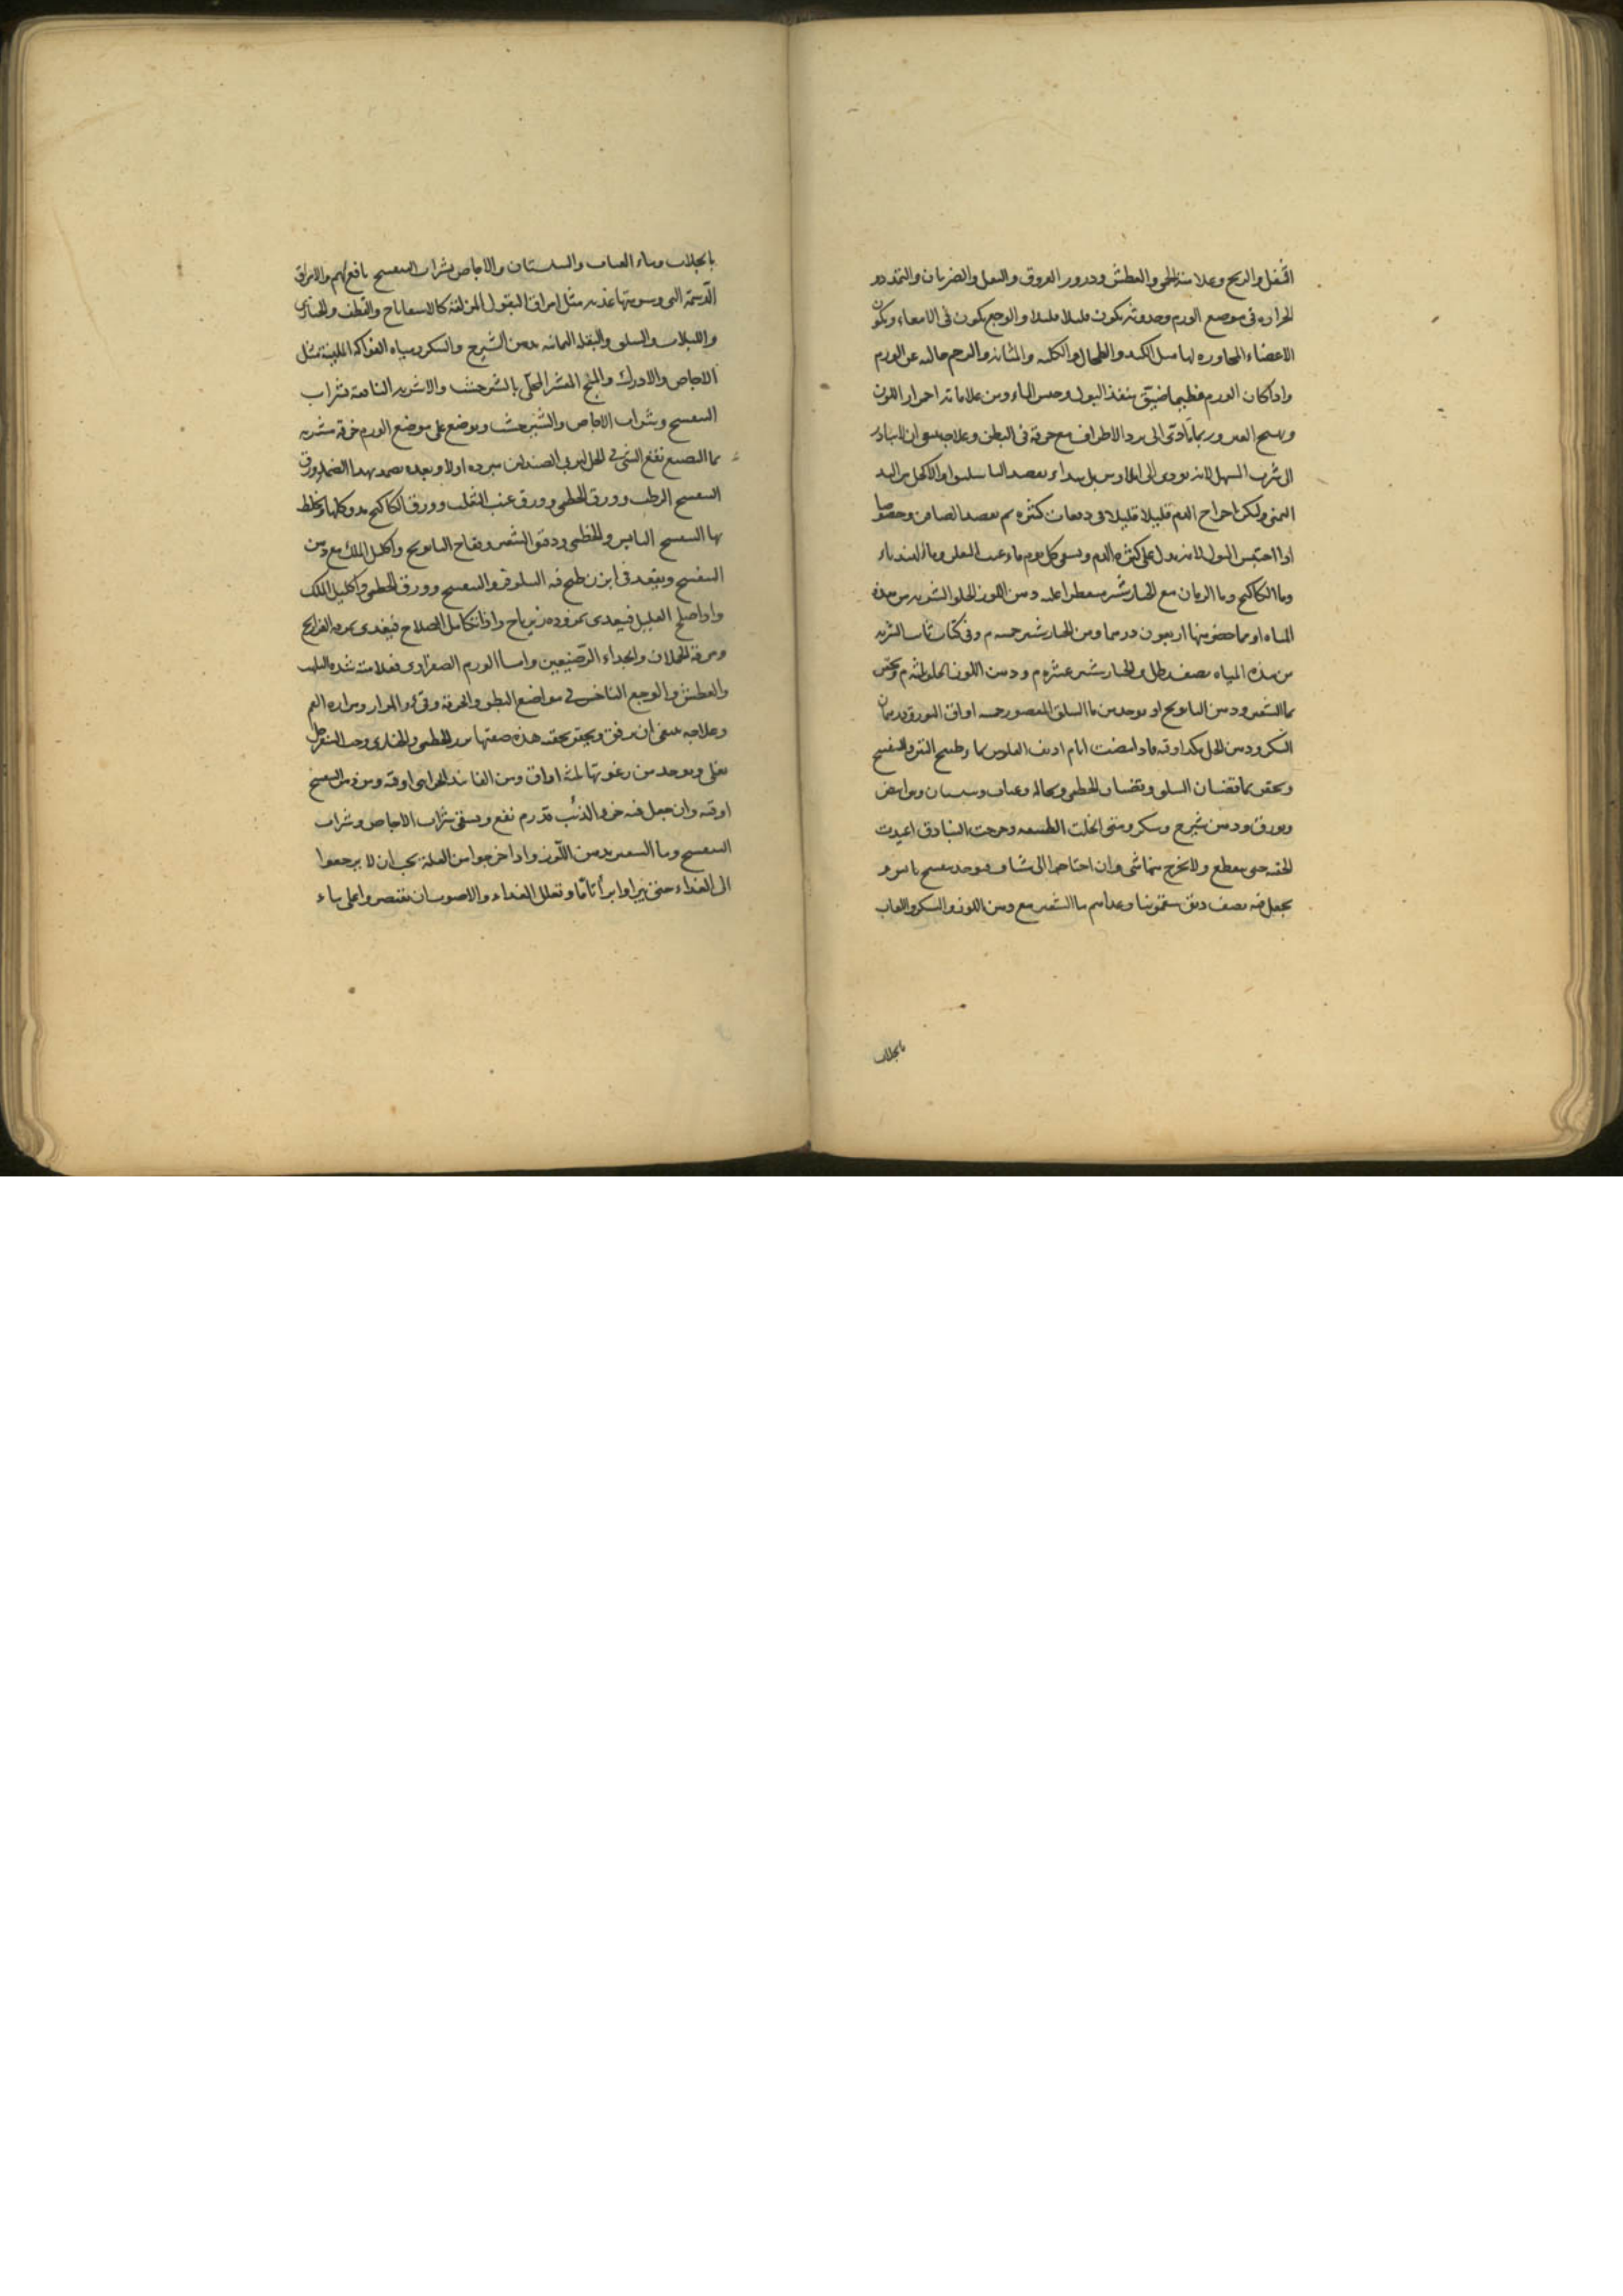 الثفل والريح وعلامته الحمى والعطش ودرور العروق والثقل والضربان والتمدد و
الحراره فى موضع الورم وحدوثه يكون قليلا قليلا والوجع يكون فى الامعاء ويكون
الاعضاء المجاوره لها مثل الكبد والطحال والكليه والمثانه والرحم خاليه عن الورم
واذا كان الورم عظيما ضيق منفذ البول وحبس الماء ومن علاماته احمرار اللون
وربما تأدى الى برد الاطراف مع حرقة فى البطن وعلاجه ان لا يبادر
الى شرب المسهل لانه يودى الى ايلاوس بل يبداء بفصد الباسليق او الاكحل من اليد
اليمنى وليكن اخراج الدم قليلا قليلا فى دفعات كثيره ثم بفصد الصافن وخصوصا
اذا احتبس البول لانه يدل على كثره الدم ويسقى كل يوم ماء عنب الثعلب وماء الهندباء
وماء الكاكنج وماء الرمان مع الخيارشنبر مقطرا عليه دهن اللوز الحلو الشربه من هذه
المياه او مما حضر منها اربعون درهما ومن الخيارشنبر خمسه م وفى كتاب الشربه
من هذه المياه نصف رطل والخيارشنبر عشره م ودهن اللوز الحلو ثلثه م ويحقن
بماء الشعير ودهن البابونج او يوخذ من ماء السلق المعصور خمسه اواق البورق درهمان
السكر ودهن الخل اوقيه فاذا مضت ايام اديف الفلوس بماء طبيخ التين والبنفسج
ويحقن بماء قضبان السلق وقضبان الخطمى ونخاله وعناب وسبستان
وبورق ودهن شيرج وسكر ومتى انحلت الطبيعه وخرجت البنادق اعيدت
الحقنه حتى ينقطع ولا يخرج منها شى وان احتاجوا الى شياف فيوخذ بنفسج يابس و
يجعل فيه نصف دانق سقمونيا وغذاهم ماء الشعير مع دهن اللوز والسكر واللعاب
بالجلاب
بالجلاب وماء العناب والسبستان والاجاص بشراب البنفسج نافع لهم والامراق
الدسمة التى اغذيه مثل امراق البقول المزلقة كالاسفاناخ والقطف والخبازى
واللبلاب والسلق والبقله اليمانيه بدهن الشيرج والسكر ومياه الفواكه الملينة مثل
الاجاص والماش المقشر المحلى بالشيرخشت والاشربه النافعة شراب
البنفسج وشراب الاجاص والشيرخشت ويوضع على موضع الورم خرقة مشربه
الصندلين مبرده اولا وبعده يضمد بهذا الضماد ورق
البنفسج الرطب وورق الخطمى وورق عنب الثعلب وورق الكاكنج يدق كلها ويخلط
بها البنفسج اليابس والخطمى ودقيق الشعير وتفاح البابونج واكليل الملك مع دهن
البنفسج ويقعد فى ابزن طبخ فيه السلق والبنفسج وورق الخطمى واكليل الملك
واذا صلح العليل فيغذى بمزوره زيرباج واذا تكامل الصلاح فيغذى بمرقه الفراريج
ومرقة الحملان والجداء الرضيعين واما الورم الصفراوى فعلامته شده اللهيب
والعطش والوجع الناخس فى مواضع البطن والحرقة وقىء المرار ومراره الفم
وعلاجه ينبغى ان يرفق ويحقن بحقنه هذه صفتها بزر الخطمى والخبازى وحب السفرجل
يغلى ويوخذ من رغوتها ثلثه اواق ومن الفانيذ الخزاينى اوقيه ومن دهن البنفسج
اوقيه وان جعل فيه خرو الذئب قدر م نفع ويسقى شراب الاجاص وشراب
البنفسج وماء الشعير بدهن اللوز واذا خرجوا من العلة يجب ان لا يرجعوا
الى الغذاء حتى يبراوا برأ تاما وتقليل الغذاء والاصوب ان يقتصروا على ماء